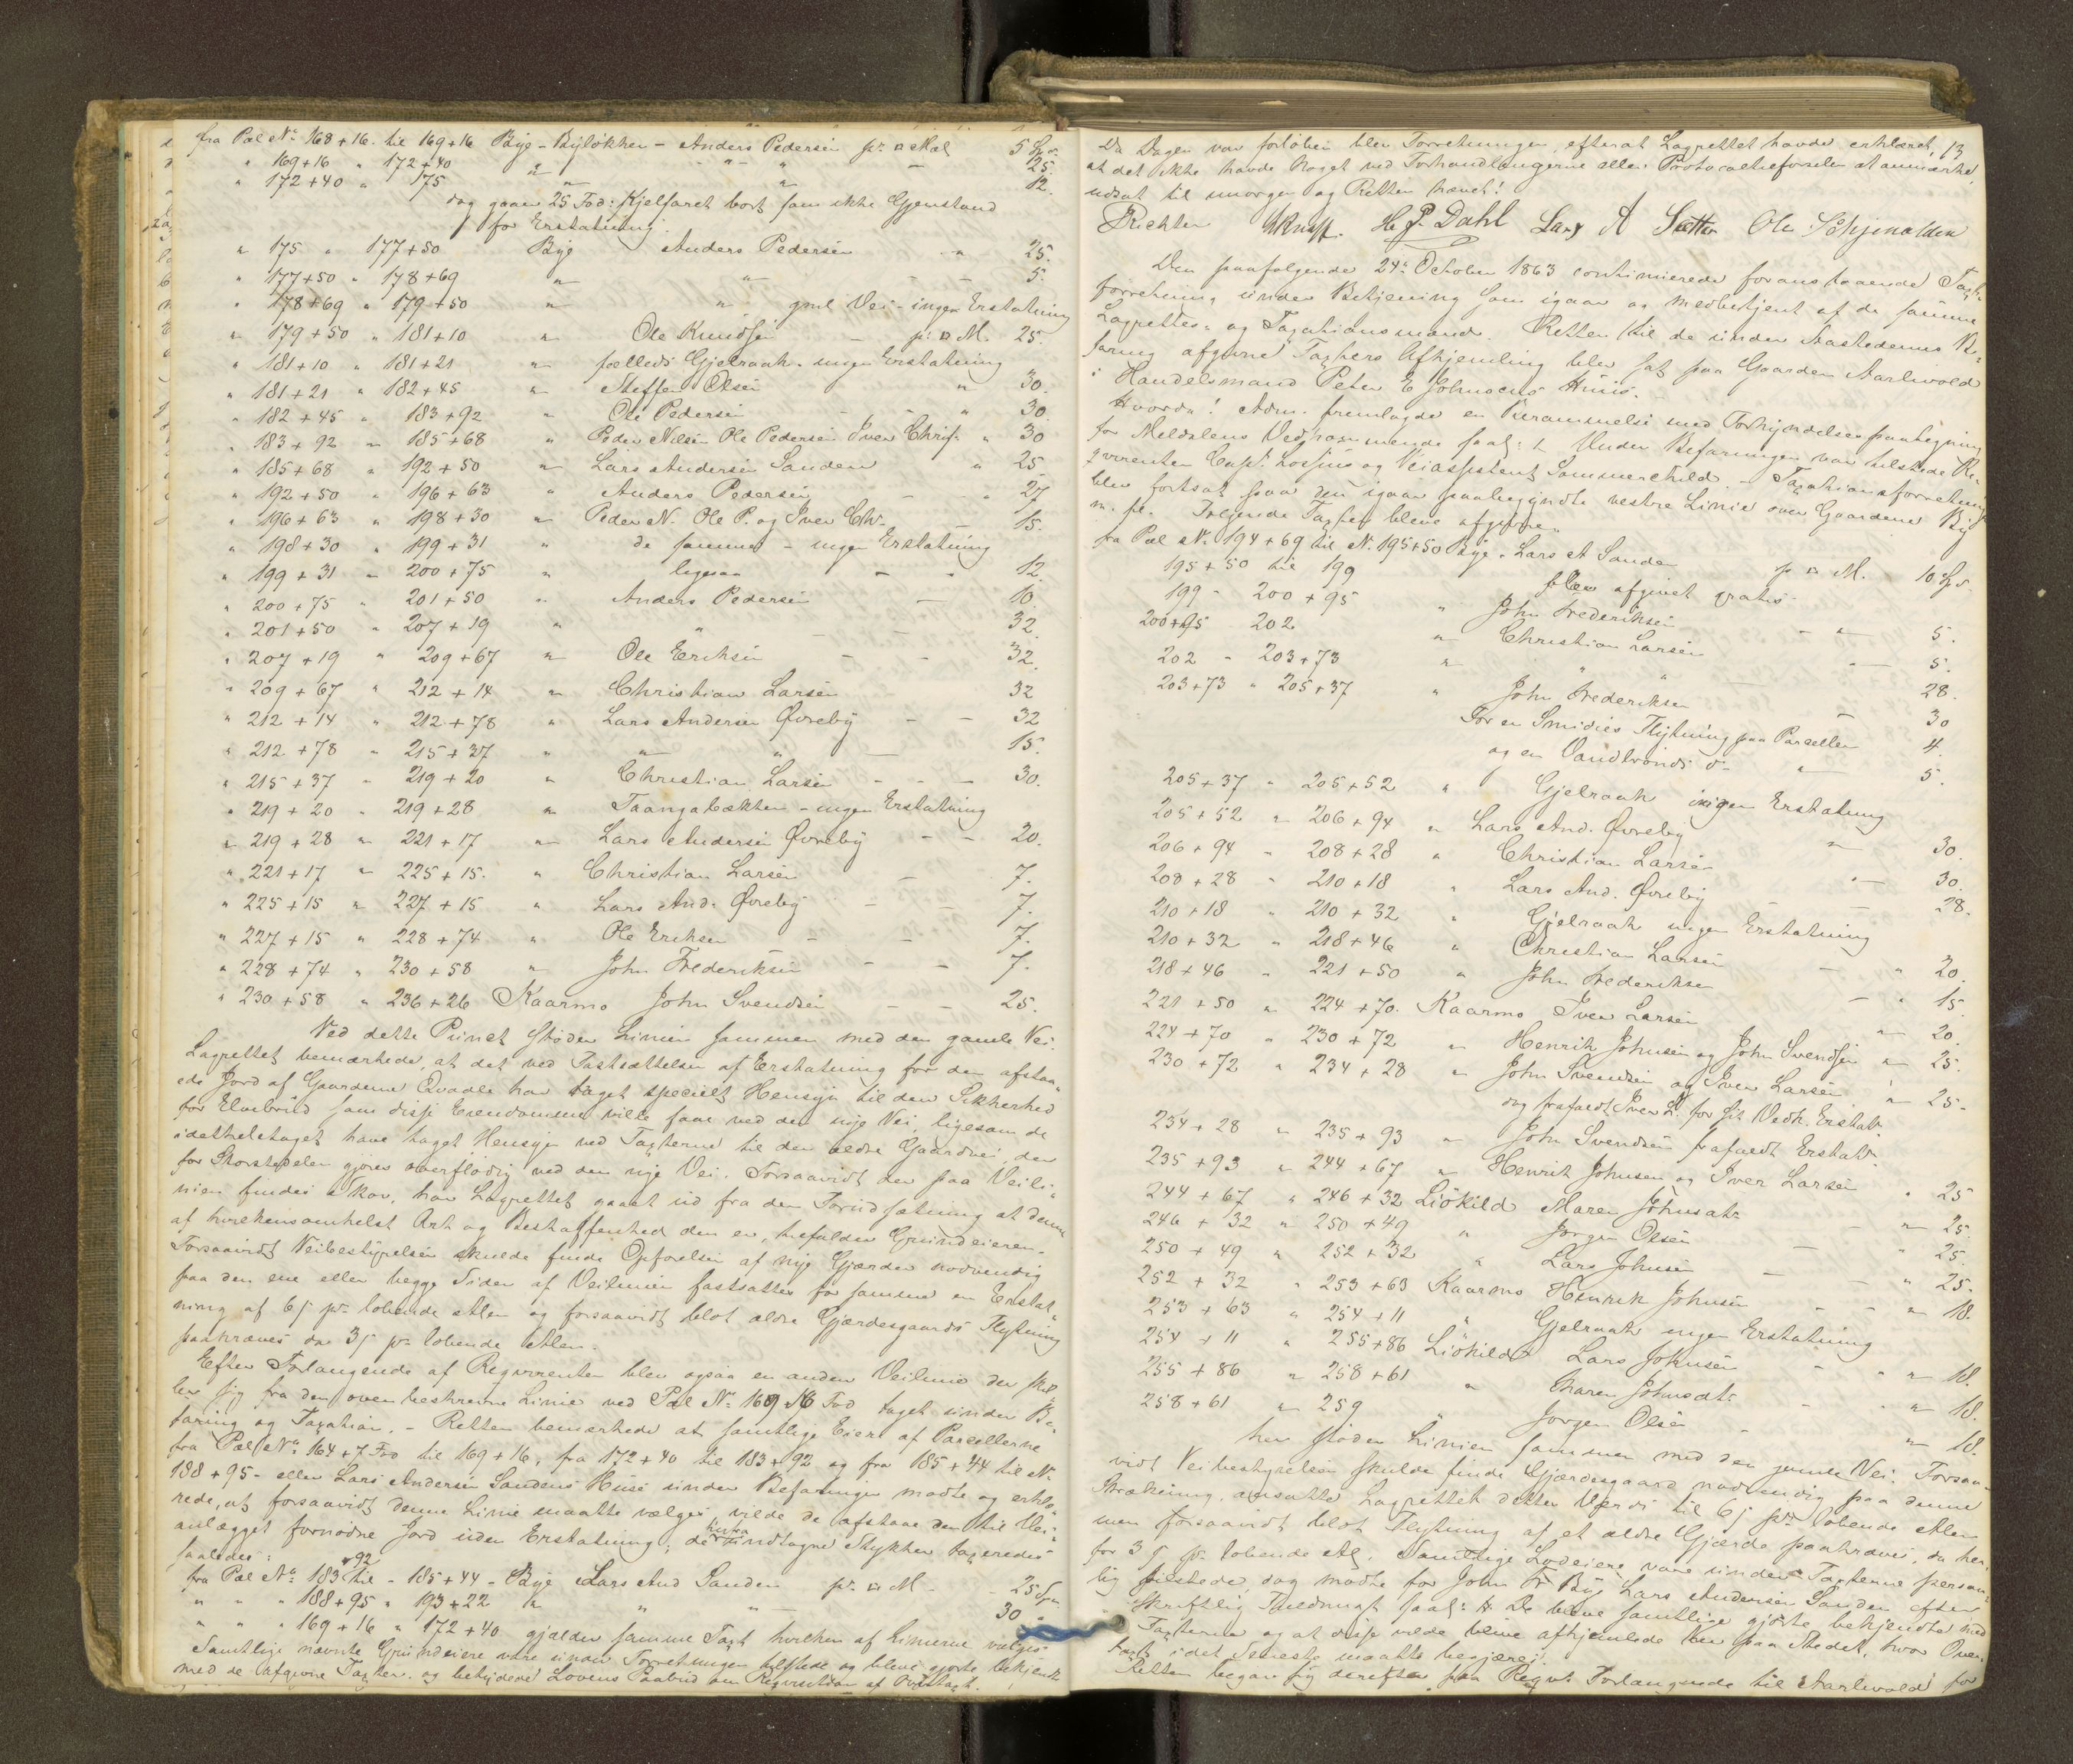 fra Pæl No 168+16. til 169+16 Bye - Byløkken - Anders Pedersen pr □ Mæl 5 Sp.
" 169+16 " 172+40 " " " 25.
" 172+40 " 175 " " " 12.
dog gaaer 25 Fod: Kjelfaret bort som ikke Gjenstand
for Erstatning.
" 175 " 177+50 Bye Anders Pedersen " 25.
" 177+50 " 178+69 " " - - 5.
" 178+69 " 179+50 " " gml Vei - ingen Erstatning
" 179+50 " 181+10 " Ole Knudsen - pr □ M. 25.
" 181+10 " 181+21 " fælleds Gjelraak - ingen Erstatning
" 181+21 " 182+45 " Steffen Olsen " 30.
" 182+45 " 183+92 " Ole Pedersen - - " 30
" 183+92 " 185+68 " Peder Nilsen Ole Pedersen Iver Christ. " 30
" 185+68 " 192+50 " Lars Andersen Sanden " 25
" 192+50 " 196+63 " Anders Pedersen - " 27
" 196+63 " 198+30 " Peder N. Ole P. og Iver Chr. 15.
" 198+30 " 199+31 " de samme - ingen Erstatning
" 199+31 " 200+75 " ligesaa - - 12.
" 200+75 " 201+50 " Anders Pedersen - 10.
" 201+50 " 207+19 " " - - 32.
" 207+19 " 209+67 " Ole Eriksen - - 32.
" 209+67 " 212+14 " Christian Larsen 32
" 212+14 " 212+78 " Lars Andersen Øvreby - - 32
" 212+78 " 215+37 " " " - 15.
" 215+37 " 219+20 " Christian Larsen - - - 30.
" 219+20 " 219+28 " Taangabækken - ingen Erstatning
" 219+28 " 221+17 " Lars Andersen Øvreby - - 20.
" 221+17 " 225+15. " Christian Larsen - 7.
" 225+15 " 227+15 " Lars And. Øvreby - - 7.
" 227+15 " 228+74 " Ole Eriksen - - 7.
" 228+74 " 230+58 " John Frederiksen - - 7.
" 230+58 " 236+26 Kaarmo John Svendsen - - 25.
Ved dette Punct støder Linien sammen med den gamle Vei.
Lagrettet bemærkede, at det ved Fastsættelsen af Erstatning for den afstaa-
ede Jord af Gaardene Qvaale har taget specielt Hensyn til den Sikkerhed
for Elvebrud som disse Eiendomme ville faae ved den nye Vei, ligesom de
idethele taget have taget Hensyn ved Taxterne til den ældre Gaardvei, der
for Størstedelen gjøres overflødig ved den nye Vei. Forsaavidt der paa Veili-
nien findes Skov, har Lagrettet gaaet ud fra den Forudsætning at denne
af hvilkensomhelst Art og Beskaffenhed den er, tilfalder Grundeieren.
Forsaavidt Veibestyrelsen skulde finde Opførelsen af nye Gjærder nødvendig
paa den ene eller begge Sider af Veilinien fastsattes for samme en Erstat-
ning af 6 s pr løbende Alen og forsaavidt blot ældre Gjærdesgaards Flytning
paakræves da 3 s pr løbende Alen.
Efter Forlangende af Reqvirenten blev ogsaa en anden Veilinie der skil-
ler sig fra den ovenbeskrevne Linie ved Pæl No 169+16 Fod taget under Be-
faring og Taxation. - Retten bemærkede at samtlige Eiere af Parcellerne
fra Pæl No 164+7 Fod til 169+16, fra 172+40 til 183+92 og fra 185+44 til No
188+95 - eller Lars Andersen Sandens Huse under Befaringen mødte og erklæ-
rede, at forsaavidt denne Linie maatte vælges vilde de afstaae den til Vei-
anlægget fornødne Jord uden Erstatning; de herfra undtagne Stykker taxeredes
saaledes:
fra Pæl No 183+92 til - 185+44 - Bye Lars And Sanden pr □ M - - 25 Sp
" " " 188+95 " 193+22 " " " 30 "
" " " 169+16 " 172+40 gjælder samme Taxt hvilken af Linierne vælges.
Samtlige nævnte Grundeiere vare under Forretningen tilstede og bleve gjorte bekjendt
med de afgivne Taxter og betydede Lovens Paabud om Reqvisition af Overtaxt.
13
Da Dagen var forløben blev Forretningen, efterat Lagrettet havde erklæret,
at det ikke havde Noget ved Forhandlingerne eller Protocolførselen at anmærke,
udsat til imorgen og Retten hævet!
Richter HP. Dahl Lars A Sæther Ole Schjinalden
Den paafølgende 24de October 1863 continuerede foranstaaende Taxt-
forretning under Betjening som igaar og medbetjent af de samme
Lagrettes- og Taxationsmænd. Retten til de under Aastedernes Be-
faring afgivne Taxters Afhjemling blev sat paa Gaarden Aarlivold
i Handelsmand Peter E Johnsens Huus.
Hvorda! Adm. fremlagde en Berammelse med Forkyndelsespaategning
for Meldalens Vedkommende saal: L Under Befaringen var tilstede Re-
qvirenten Capt. Lossius og Veiassistent Sommerschild. - Taxationsforretning
blev fortsat paa den igaar paabegyndte vestre Linie over Gaardene Bye
m. fl. Følgende Taxter bleve afgivne
fra Pæl No 194+69 til No 195+50 Bye. Lars A Sanden pr □ M. 10 Sp
195+50 til 199 blev afgivet gratis
199 - 200+95 " John Frederiksen - " 5.
200+95 202 " Christian Larsen - 5.
202 - 203+73 " " " 28.
203+73 " 205+37 " John Frederiksen - 30
For en Smidies Flytning paa Parcellen 4.
og en Vandbrønds do " 5.
205+37 " 205+52 " Gjelraak ingen Erstatning
205+52 " 206+94 " Lars And. Øvreby " 30.
206+94 " 208+28 " Christian Larsen " 30.
208+28 " 210+18 " Lars And. Øvreby - 28.
210+18 " 210+32 " Gjelraak ingen Erstatning
210+32 " 218+46 " Christian Larsen - " 20.
218+46 " 221+50 " John Frederiksen - " 15.
221+50 " 224+70. Kaarmo Iver Larsen " 20.
224+70 " 230+72 " Henrik Johnsen og John Svendsen " 25.
230+72 " 234+28 " John Svendsen og Iver Larsen " 25-
dog frafaldt Iver L. for sit Vedk. Erstatn
234+28 " 235+93 " John Svendsen frafaldt Erstatn.
235+93 " 244+67 " Henrik Johnsen og Iver Larsen " 25
244+67 " 246+32 Liökild Maren Johnsdtr - " 25.
246+32 " 250+49 " Jørgen Olsen - " 25.
250+49 " 252+32 " Lars Johnsen - - " 25.
252+32 " 253+63 Kaarmo Henrik Johnsen - - " 18.
253+63 " 254+11 " Gjelraak ingen Erstatning
254+11 " 255+86 Liökild Lars Johnsen - " " 18.
255+86 " 258+61 " Maren Johnsdtr - " " 18.
258+61 " 259 " Jørgen Olsen " 18.
her støder Linien sammen med den gamle Vei. Forsaa-
vidt Veibestyrelsen skulde finde Gjærdesgaard nødvendig paa denne
Strækning, ansatte Lagrettet dettes Værdi til 6 s pr løbende Alen
men forsaavidt blot Flytning af et ældre Gjærde paakræves, da her-
for 3 s pr løbende Al. Samtlige Lodeiere vare under Taxterne person-
lig tilstede, dog mødte for John Fr Bye Lars Andersen Sanden efter
skriftlig Fuldmagt saal: De bleve samtlige gjorte bekjendte med
Taxterne og at disse vilde blive afhjemlede her paa Stedet, hvor Over-
taxt i det Seneste maatte begjæres.
Retten begav sig derefter paa Reqvt Forlangende til Aarlivold for